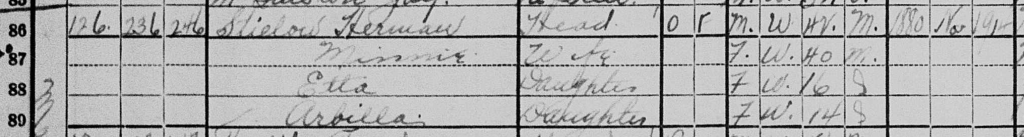 86 126 236 246 Stielow Herman Head O F M. W 42 M. 1880 Nov
87 Minnie Wife F. W. 40 M.
88 Etta Daughter F W. 16 S
89 Arvilla. Daughter F W. 14 S